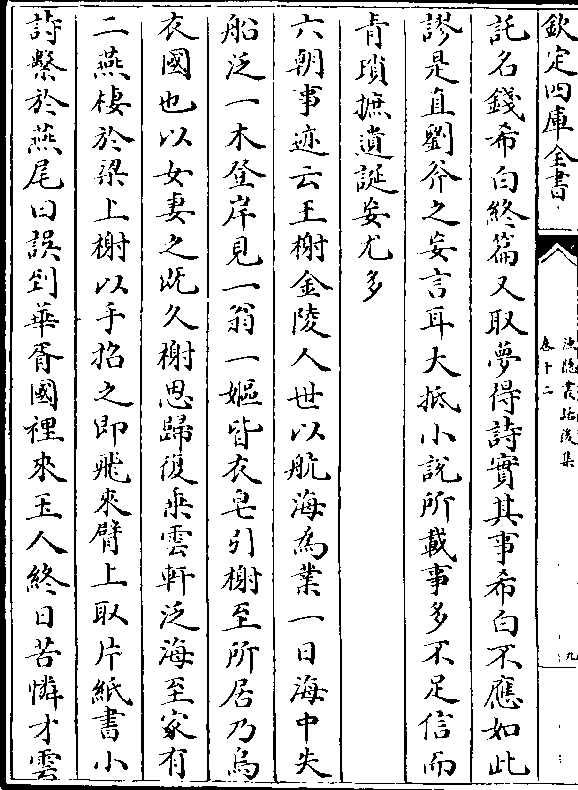 欽定四庫全書
漁隱叢話後集
卷十二
九
託名錢希白終篇又取夢得詩實其事希白不應如此
謬是直劉斧之妄言耳大抵小說所載事多不足信而
青瑣摭遺誕妄尤多
六朝事迹云王榭金陵人世以航海為業一日海中失
船泛一木登岸見一翁一嫗皆衣皂引榭至所居乃烏
衣國也以女妻之既久榭思歸復乘雲軒泛海至家有
二燕棲於梁上榭以手招之即飛來臂上取片紙書小
詩繫於燕尾曰誤到華胥國裡來玉人終日苦憐才雲